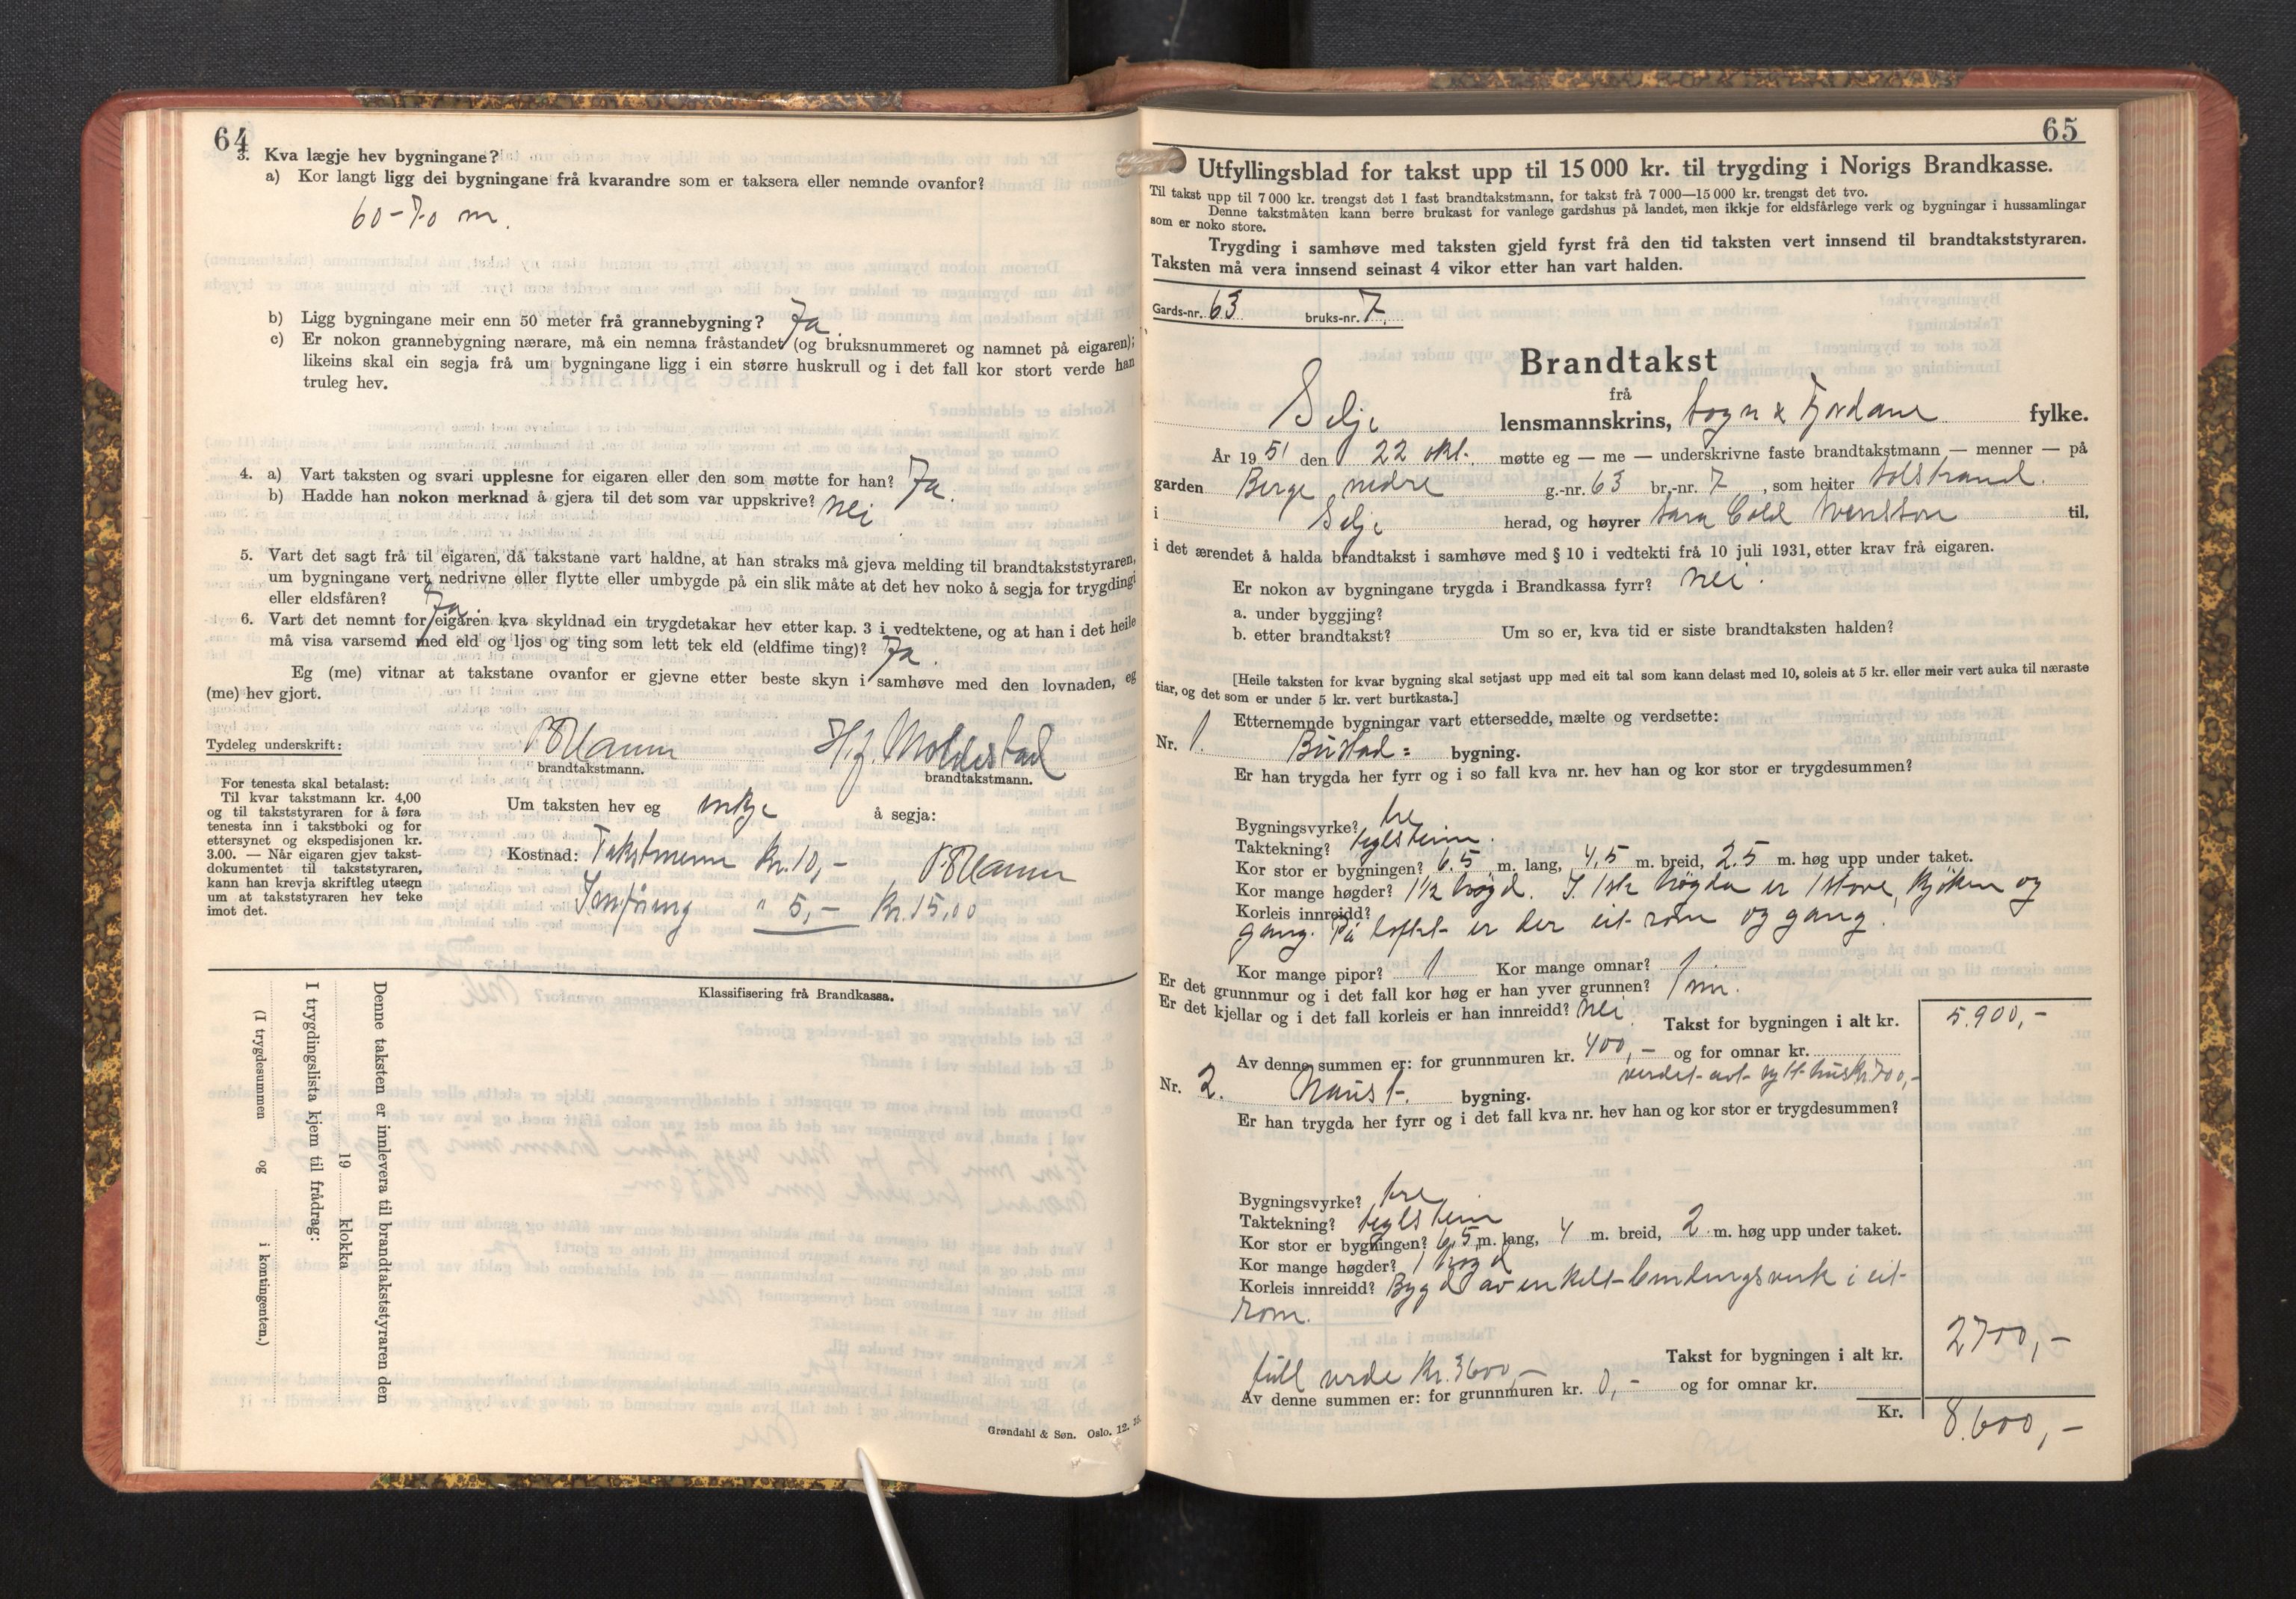 64
3. Kva lægje hev bygningane?
a) Kor langt ligg dei bygningane frå kvarandre som er taksera eller nemnde ovanfor?
60-70 m.
b) Ligg bygningane meir enn 50 meter frå grannebygning? Ja.
c) Er nokon grannebygning nærare, må ein nemna fråstandet (og bruksnummeret og namnet på eigaren);
likeins skal ein segja frå um bygningane ligg i ein større huskrull og i det fall kor stort verde han
truleg hev.
4. a) Vart taksten og svari upplesne for eigaren eller den som møtte for han? Ja.
b) Hadde han nokon merknad å gjera til det som var uppskrive? nei
5. Vart det sagt frå til eigaren, då takstane vart haldne, at han straks må gjeva melding til brandtakststyraren,
um bygningane vert nedrivne eller flytte eller umbygde på ein slik måte at det hev noko å segja for trygdingi
eller eldsfåren? Ja.
6. Vart det nemnt for eigaren kva skyldnad ein trygdetakar hev etter kap. 3 i vedtektene, og at han i det heile
må visa varsemd med eld og ljos og ting som lett tek eld (eldfime ting)? Ja.
Eg (me) vitnar at takstane ovanfor er gjevne etter beste skyn i samhøve med den lovnaden, eg
(me) hev gjort.
Tydeleg underskrift: H.J. Moldestad
brandtakstmann. brandtakstmann.
For tenesta skal betalast:
Til kvar takstmann kr. 4,00
og til takststyraren for å føra
tenesta inn i takstboki og for
ettersynet og ekspedisjonen kr.
3.00. — Når eigaren gjev takst-
dokumentet til takststyraren,
kann han krevja skriftleg utsegn
um at takststyraren hev teke
imot det.
Um taksten hev eg inkje å segja:
Kostnad: Takstmenn Kr. 10,-
Innføring " 5,- Kr. 15,00
Klassifisering frå Brandkassa.
Denne taksten er innlevera til brandtakststyraren den
19 klokka
I trygdingslista kjem til frådrag:
(I trygdesummen og i kontingenten.)
Grøndahl & Søn. Oslo. 12.
65
Utfyllingsblad for takst upp til 15 000 kr. til trygding i Norigs Brandkasse.
Til takst upp til 7 000 kr. trengst det 1 fast brandtakstmann, for takst frå 7 000—15 000 kr. trengst det tvo.
Denne takstmåten kann berre brukast for vanlege gardshus på landet, men ikkje for eldsfårlege verk og bygningar i hussamlingar
som er noko store.
Trygding i samhøve med taksten gjeld fyrst frå den tid taksten vert innsend til brandtakststyraren.
Taksten må vera innsend seinast 4 vikor etter han vart halden.
Gards-nr. 63 bruks-nr. 7.
Brandtakst
frå
Selje lensmannskrins, Sogn & Fjordane fylke.
År 1951 den 22 okt. møtte eg — me — underskrivne faste brandtakstmann — menner — på
garden Berge nedre g.-nr. 63 br.-nr. 7, som heiter Solstrand.
i Selje herad, og høyrer Sara til,
i det ærendet å halda brandtakst i samhøve med § 10 i vedtekti frå 10 juli 1931, etter krav frå eigaren.
Er nokon av bygningane trygda i Brandkassa fyrr? nei.
a. under byggjing?
b. etter brandtakst? Um so er, kva tid er siste brandtaksten halden?
[Heile taksten for kvar bygning skal setjast upp med eit tal som kann delast med 10, soleis at 5 kr. eller meir vert auka til næraste
tiar, og det som er under 5 kr. vert burtkasta.]
Etternemnde bygningar vart ettersedde, mælte og verdsette:
Nr. 1. Bustad = bygning.
Er han trygda her fyrr og i so fall kva nr. hev han og kor stor er trygdesummen?
Bygningsvyrke? tre
Taktekning? teglstein.
Kor stor er bygningen? 6.5 m. lang, 4,5 m. breid, 2.5 m. høg upp under taket.
Kor mange høgder? 1½ høgd. I 1ste høgda er 1 stove, kjøken og
Korleis innreidd?
gang. På loftet er der eit rom og gang.
Kor mange pipor? 1 Kor mange omnar? 1.
Er det grunnmur og i det fall kor høg er han yver grunnen? 1 m.
Er det kjellar og i det fall korleis er han innreidd? nei.
Takst for bygningen i alt kr. 5.900,-
Av denne summen er: for grunnmuren kr. 400,- og for omnar kr.
verdet av kr. 700,-
Nr. 2. Naust. bygning.
Er han trygda her fyrr og i det fall kva nr. hev han og kor stor er trygdesummen?
Bygningsvyrke? tre
Taktekning? teglstein
Kor stor er bygningen? 6,5 m. lang, 4 m. breid, 2 m. høg upp under taket.
Kor mange høgder? 1 høgd
Korleis innreidd? Bygd av enkelt bindingsverk i eit
rom.
Takst for bygningen i alt kr. 2700,-
full verde Kr. 3600,-
Av denne summen er: for grunnmuren kr. 0,- og for omnar kr.
Kr. 8.600,-